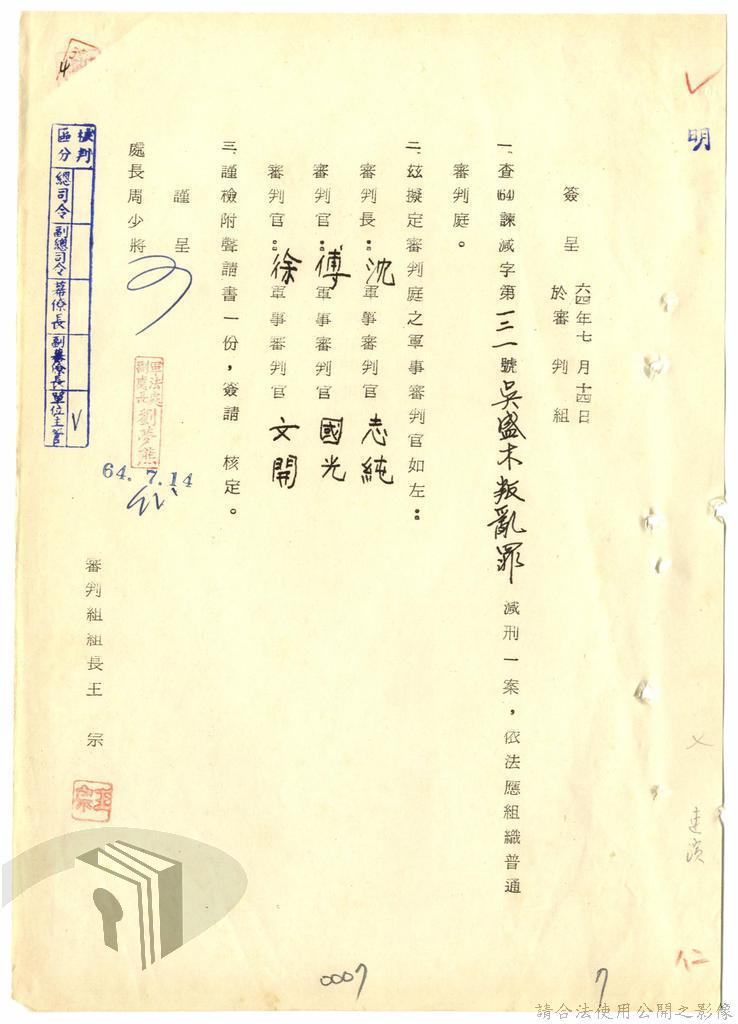 明
簽呈 六四年七月十四日
於審判組
一、查(64)諫减字第一三一號吳盛木叛亂罪減刑一案，依法應組織普通
審判庭。
二、茲擬定審判庭之軍事審判官如左：
審判長：沈軍事審判官志純
審判官：傅軍事審判官國光
審判官：徐軍事審判官文開
三、謹檢附聲請書一份，簽請 核定。
謹呈
處長周少將
軍法處
副處長劉夢熊
64.7.14
審判組組長王 宗
核判區分
總司令
副總司令
幕僚長
副幕僚長
單位主管
V
0007
7
仁
請合法使用公開之影像